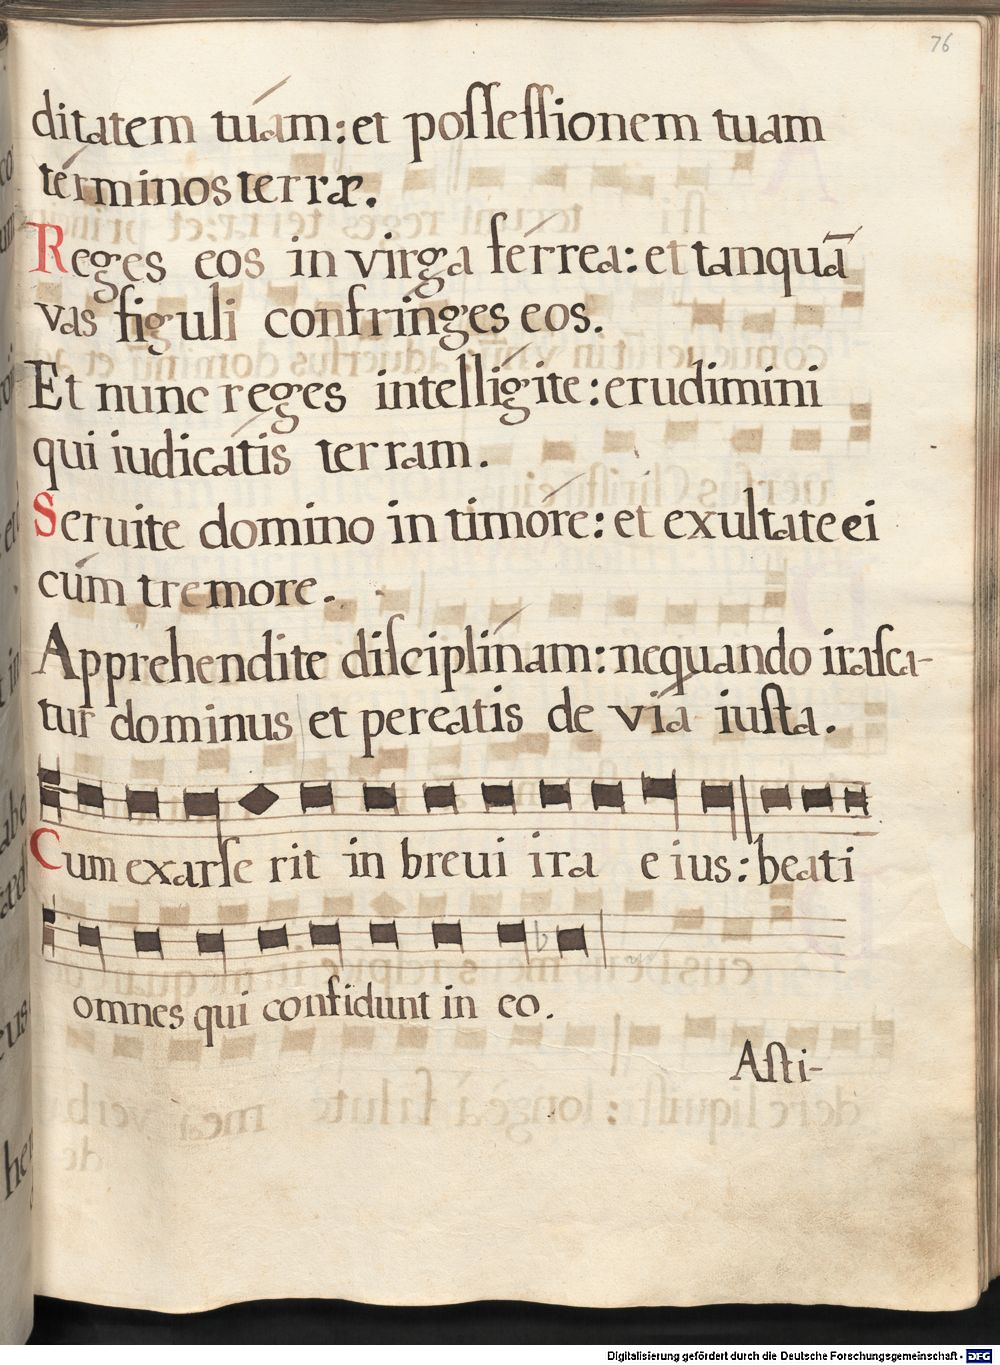 76
ditatem tuám: et poſſeſſionem tuam
términos terræ.
Reges eos in virga férrea: et tanquā
vas figuli confrínges eos.
Et nunc reges intellígite: erudimini
qui iudicátis terram.
Seruite domino in timóre: et exultate ei
cúm tremore.
Apprehendite diſciplínam: nequando iraſca-
tur dominus et pereatis de vía iuſta.
Cum exarſe rit in breui ira e ius: beati
omnes qui confidunt in eo.
Aſti-
Digitalisierung gefördert durch die Deutsche Forschungsgemeinschaft - DFG